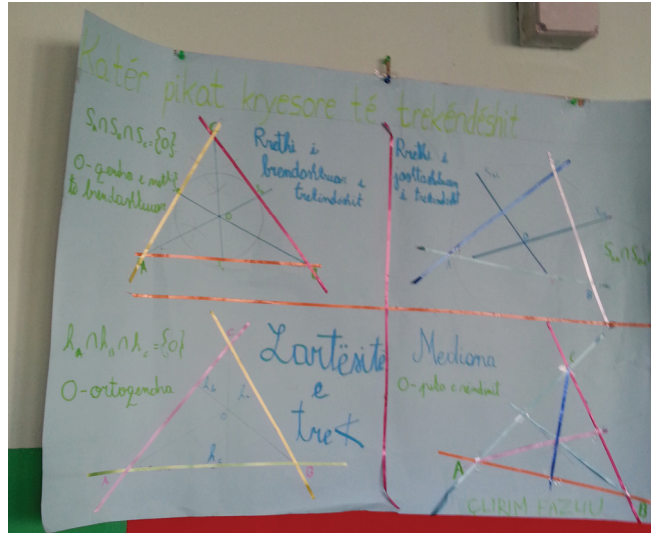 Katër pikat kryesore të trekëndëshit
Sₐ∩S ∩S꜀={O}
O-qendra e rrethit
të brendashkruar
Rrethi i
brendashkruar i
trekëndëshit
A
Rrethi i
jashtashkruar
i trekëndësh
hₐ∩h ∩h꜀={O}
O-ortoqendra
Lartësitë
e
trek
h꜀
A
B
Mediana
O-pika e rëndimit
A
C
B
ÇLIRIM FAZLIU